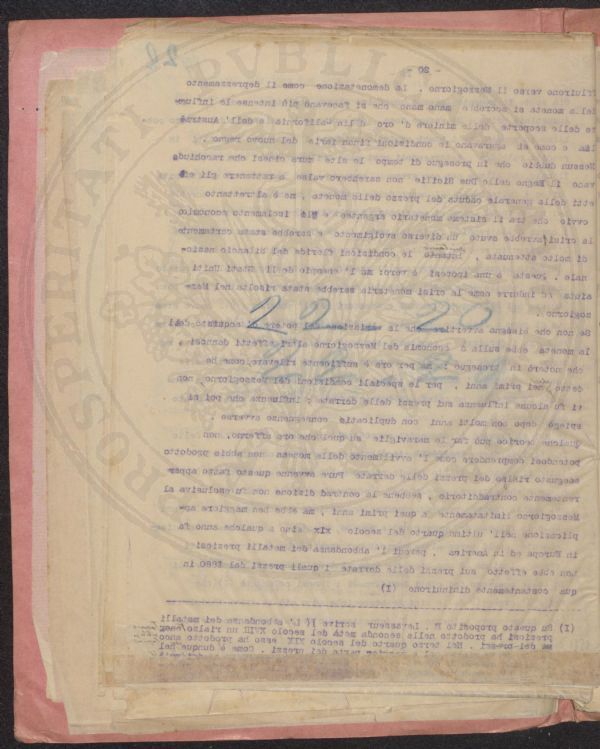 - 20 -
fluirono verso il Mezzogiorno . La demonetazione come il deprezzamento
della moneta si accrebbe mano mano che si facevano più intense le influen-
ze delle scoperte delle miniere d' oro d in California e dell' Austra
lia e come si aggravano le condizioni finanziarie del nuovo regno .
Nessun dubbio che in prosieguo di tempo le alte mura cinesi che racchiude
vano il Regno delle Due Sicilie non sarebbero valse a rattenere gli eff
etti della generale caduta del prezzo delle monete , ma è altrettanto
ovvio che tra il sistema monetario argenteo e l' isolamento economico
la crisi avrebbe avuto un diverso svolgimento e sarebbe stata certamente
di molto attenuata , le condizioni floride del bilancio nazio-
nale . Questa è una ipotesi è vero; ma l' esempio degli Stati Uniti
aiuta ad indurre come la crisi monetaria sarebbe stata risolta nel Mez-
zogiorno .
Se non che bisogna avvertire che la variazione del potere di acquisto del
la moneta ebbe sulla economia del Mezzogiorno altri effetti dannosi ,
che noterò in prosieguo ; ma per ora è sufficiente rilevare come ho
detto nei primi anni , per le speciali condizioni del Mezzogiorno , non
vi fu alcuna influenza sui prezzi delle derrate ; influenza che poi si
spiegò dopo con molti anni con duplicate conseguenze avverse .
Qualche teorico può far le meraviglie su quel che ora affermo, non
potendosi comprendere come l' avvilimento della moneta non abbia prodotto
adeguato rialzo dei prezzi delle derrate Pure avvenne questo fatto appar-
rentemente contradittorio , sebbene la contradizione non fu esclusiva al
Mezzogiorno limitatamente a quei primi anni , ma ebbe ben maggiore ap-
plicazione nell' ultimo quarto del secolo XIX sino a qualche anno fa
in Europa ed in America . perchè l' abbondanza dei metalli preziosi
non ebbe effetto sui prezzi delle derrate i quali prezzi dal 1880 in
qua costantemente diminuirono (I)
(I) Su questo proposito E . Levasseur scrive " L' abbondanza dei metalli
preziosi ha prodotto nella seconda metà del secolo XVIII un rialzo enor
me dei prezzi . Nel terzo quarto del secolo XIX essa ha prodotto anco
parte dei prezzi . Come è dunque nel
22
20
22
2